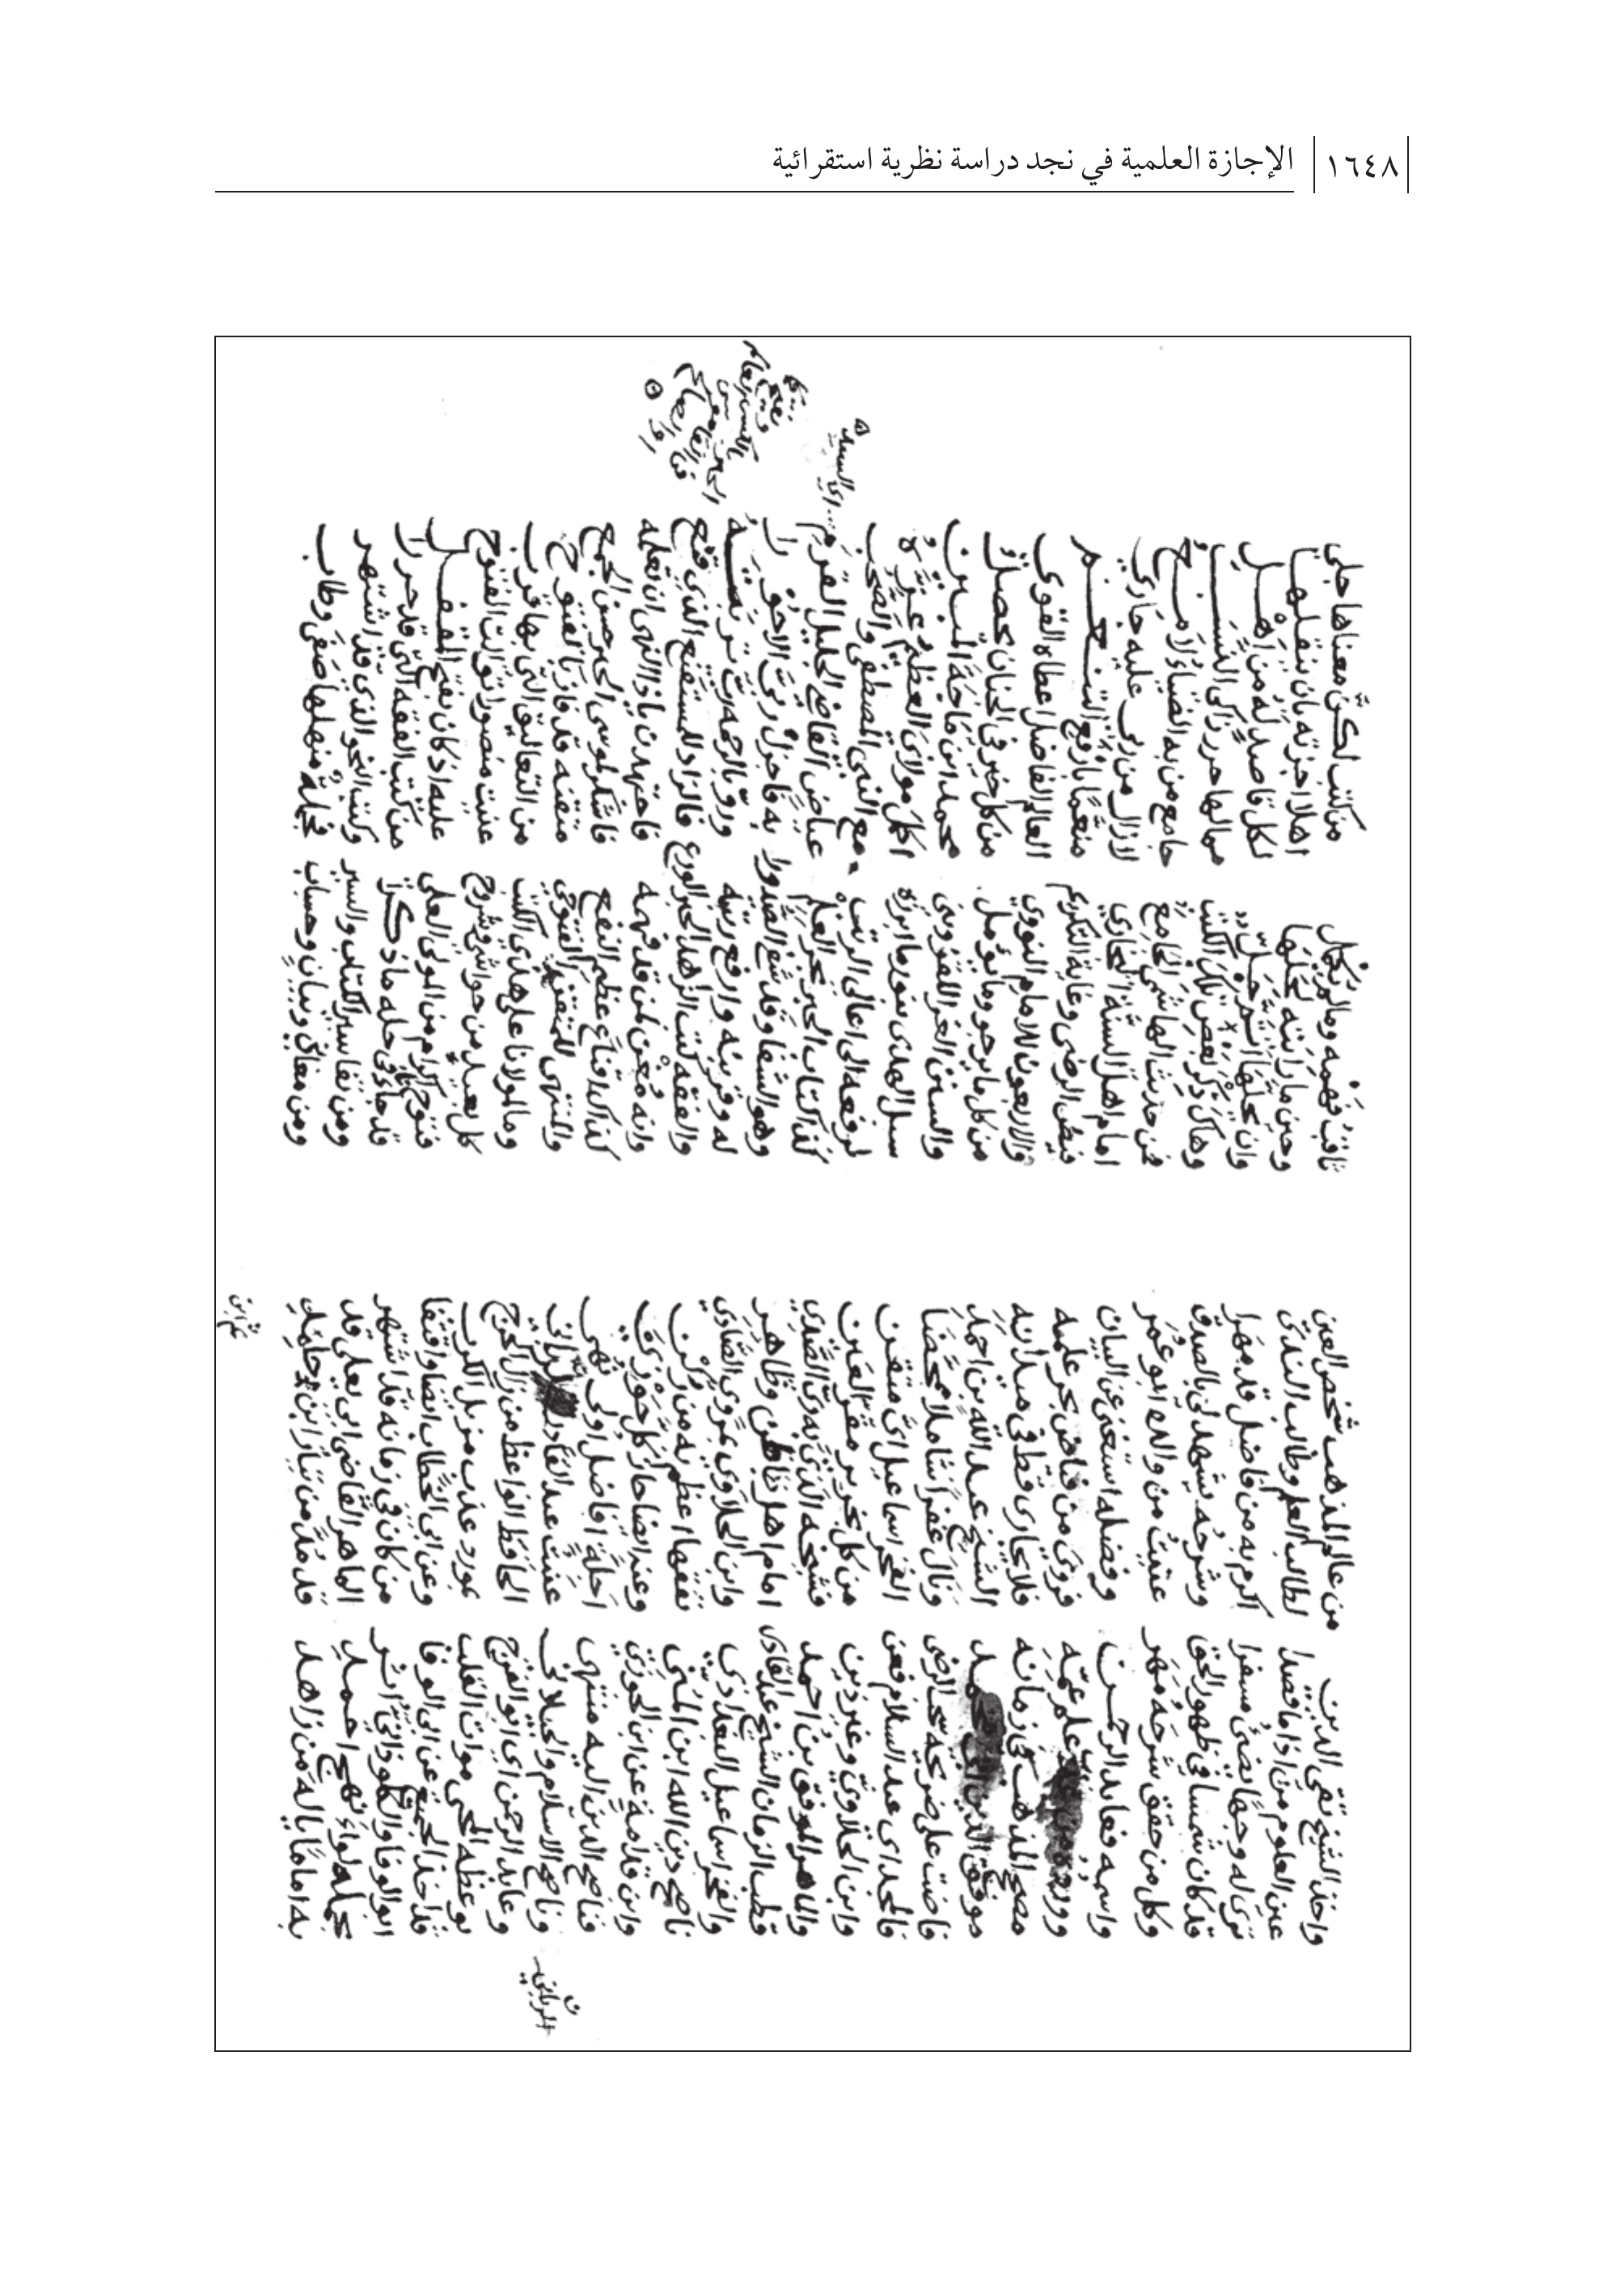 ١٦٤٨ الإجازة العلمية في نجد دراسة نظرية استقرائية
واخذ الشيخ تقي الدين من عالم المذهب شخص العين
عين العلوم من اذا ما قصدا لطالب العلم وطالب الندى
ترى له وجها يضيء مسفرا اكرم به من فاضل قد مهرا
قد كان شمسا في ظهور الحق وشرحه يشهد لي بالصدق
وكل من حقق شرحه مهر عنيت من والده ابو عمر
واسمه فعابد الرحمن وفضله استغنى عن البيان
علم عمه فروى من فاض بحر علمه
مصحح المذهب في زمانه فلا يجارى قط في ميدانه
موفق الدين محمد الشيخ عبد الله بن احمد
فاضت على ضريحه سحب الرضى ونال غفرا شاملا ممحضا
فالمجد اي عبد السلام فعن الفخر اسماعيل اي متقن
وابن الحلاوي وغير ذين من كل نحرير مقر العين
والماهر الموفق بن احمد فشيخه الذي به
قطب الزمان الشيخ عبد القادر امام اهل باطن وظاهر
والفخر اسماعيل البغدادي وابن الحلاوي مروي الصادي
ناصح دين الله ابن المني تفقها اعظم به من ركن
وابن قدامة عن ابن الجوزي وعنه ايضا حاز كل
فناصح الدين اليه منتهى اجلة افاضل اولي نهى
وناصح الاسلام والجيلاني عنيت عبد القادر الرباني
وعابد الرحمن اي ابو الفرج الحافظ الواعظ من زال الحرج
بوعظه المحيي موات القلب بمورد عذب مزيل الكرب
قد اخذ الجميع عن ابي الوفا وعن ابي الخطاب ايضا واقتفا
ابو الوفا والكلوذاني اثر من كان في زمانه قد اشتهر
بحمله لواء نهج احمد الماهر القاضي ابي يعلى قد
به اماما ياله من زاهد قد مد من تيار ابن حامد
الرباني
ثاقب فهمه وما لم من كتب لكن معناها جلي
وحين ما رايته اهلا اجزته بان ينقلها
وان لكل قاصد له من اهل
وهاك ذكر بعض تلك الكتب مما لها حرر زاكي النسب
فمن حديث الهاشمي الجامع جامع من به الضياء لامع
امام اهل السنة البخاري لازال من ربي عليه جاري
فيض الرضى وغاية التكريم منعما بارفع التنعم
والاربعون للامام النووي العالم الفاضل اعطاه القوي
من كل ما يرجو وما يؤمل من كل خير في الجنان يحصل
والسنن الغر للقزويني محمد ابن ماجة المبين
سبل الهدى بنور ما ابرزه مولاي العظيم
لرفعه الى اعالي الرتب مع النبي المصطفى والصحب
كذا كتاب الحبر بحر العلم عياض القاضي الجليل القرم
وهو الشفا وقد شفى الصدورا به فاجزل ربي الاجورا
له وقربنه وارفع رتبه ورو بالرحمه رب تربته
والفقه كتب الزاهد الحبر الورع فالزاد للمستقنع الذي قنع
وانه مغن لمن قد فهمه فاجتهدن ياذا النهى ان تعلمه
كذاك اقناع عظيم النفع فاشكر لموسى الحبر حسن الجمع
والمنتهى للمتقن الفتوحي متقنه قد فاز بالفتوح
وما لمولانا على هذي الكتب من التعاليق التي بها قرب
كل بعيد من حواش وشروح عنيت منصورا الفتوح
فتوح من المولى العلي عليه اذ كان بفتح المقفل
قد جاء في حله ما ذكرا من كتب الفقه التي قد حررا
ومن تفاسير الكتاب والسير وكتب النحو الذي قد اشتهر
ومن معاني وبيان وحساب فجملة منهلها صفى وطاب